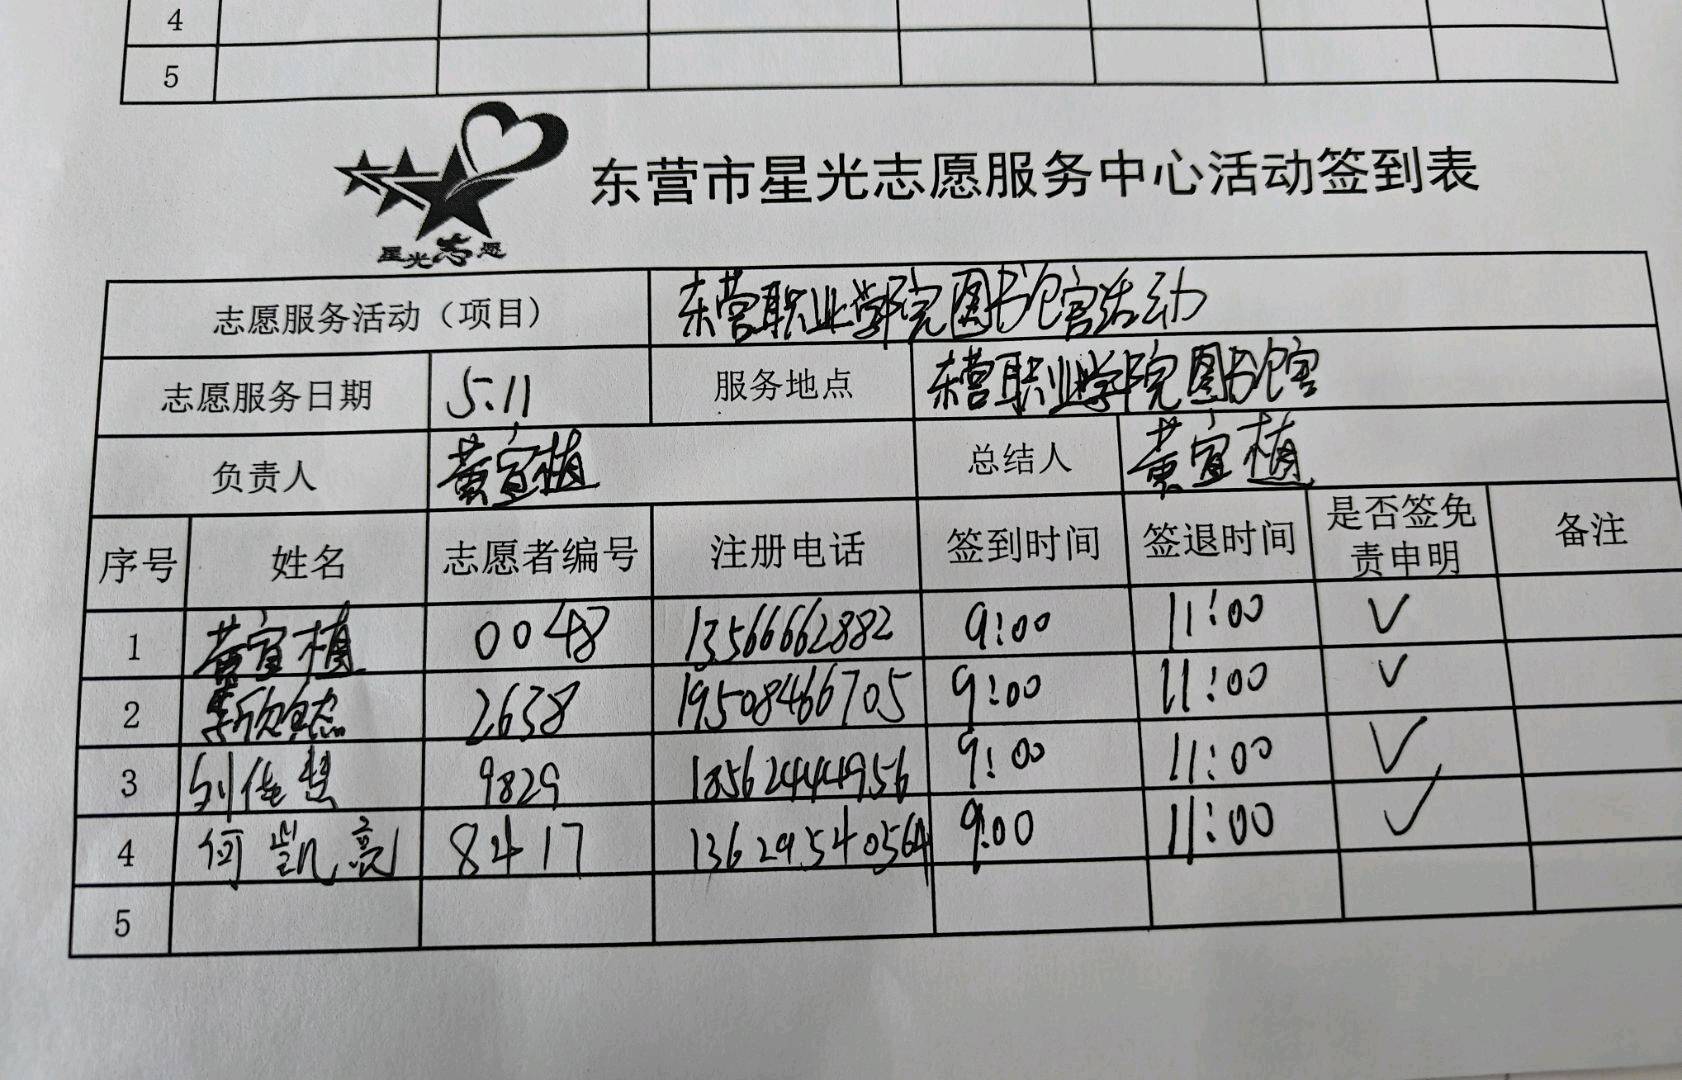 4
5
星光志愿
东营市星光志愿服务中心活动签到表
志愿服务活动（项目） 东营职业学院图书馆活动
志愿服务日期 5.11 服务地点 东营职业学院图书馆
负责人 黄宜植 总结人 黄宜植
序号 姓名 志愿者编号 注册电话 签到时间 签退时间 是否签免责申明 备注
1 黄宜植 0048 13566662882 9:00 11:00 ✓
2 2638 19508466705 9:00 11:00 ✓
3 刘佳慧 9829 18562444956 9:00 11:00 ✓
4 何凯亮 8417 13629540564 9:00 11:00 ✓
5